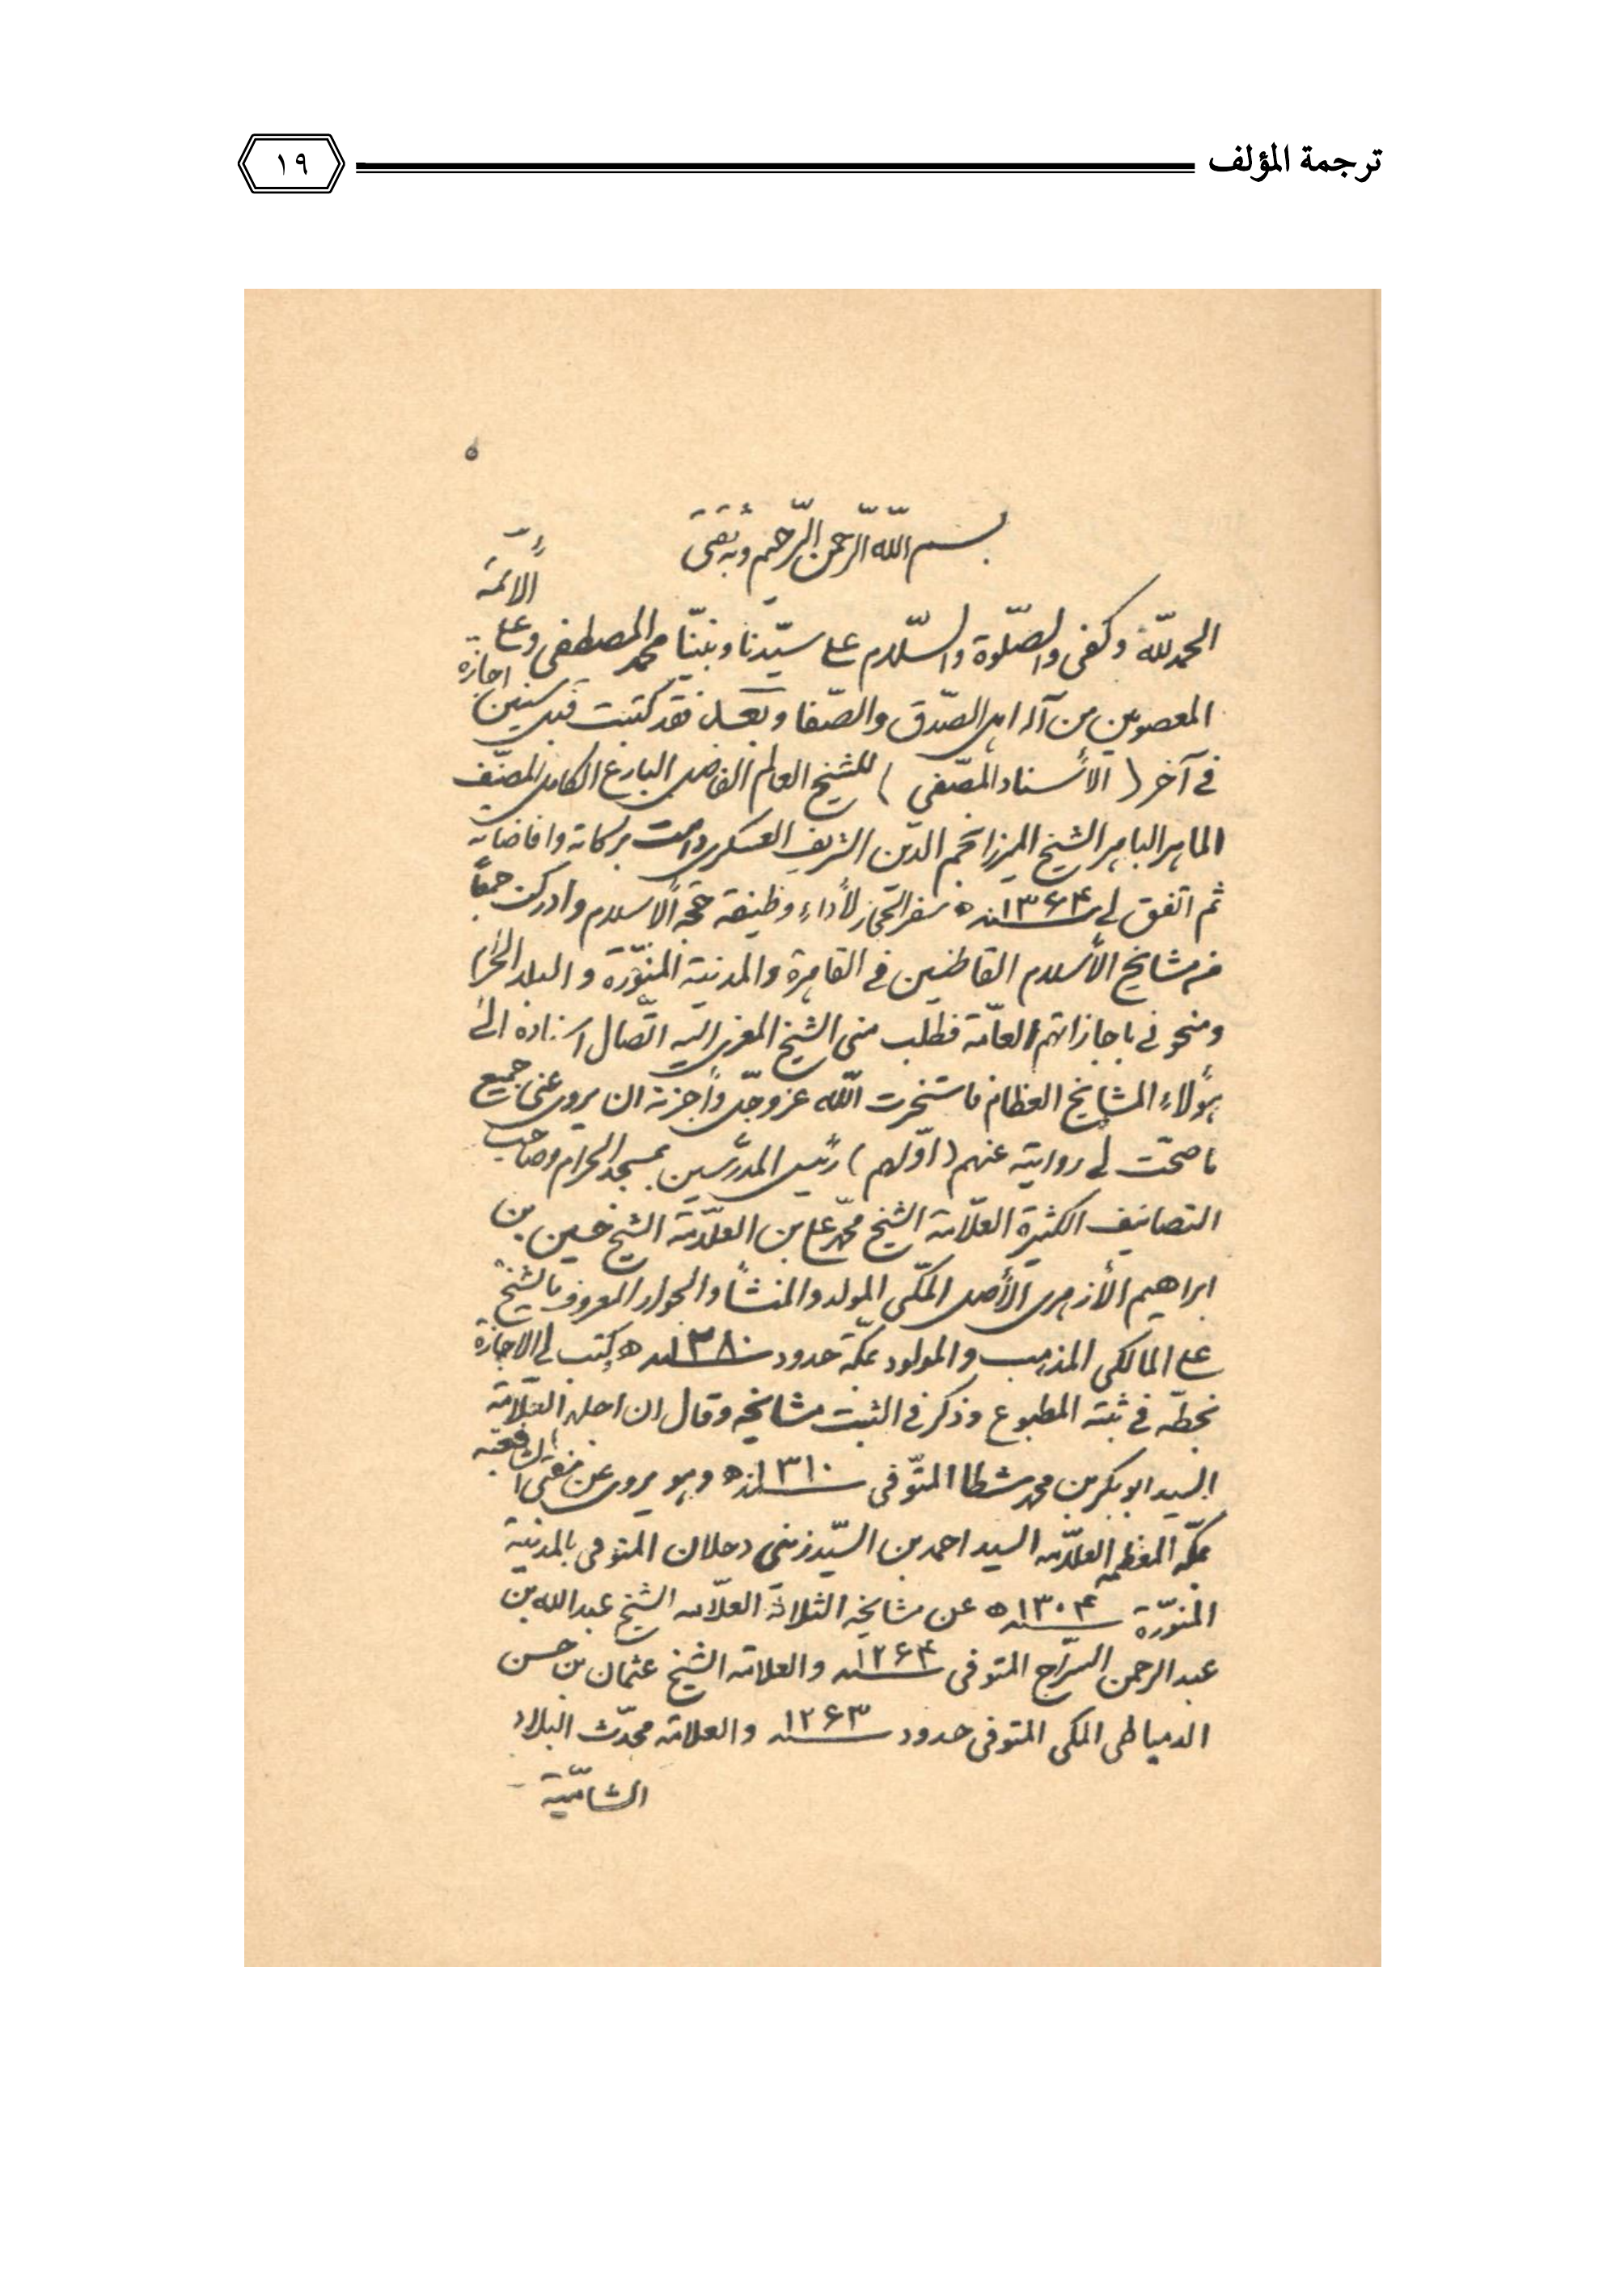 ترجمة المؤلف
١٩
٥
بسم اللّه الرّحمن الرّحيم وبه ثقتي
الحمد للّه وكفى والصّلوة والسّلام على سيّدنا ونبيّنا محمد المصطفى وعلى الأئمّة
المعصومين من آله اهل الصّدق والصّفا وبعد فقد كتبت قبل سنين اجازة
في آخر (الأسناد المصّفى) للشيخ العالم الفاضل البارع الكامل المصنّف
الماهر الباهر الشيخ الميرزا نجم الدين الشريف العسكري دامت بركاته وافاضاته
ثم اتفق لي سنة ١٣٦۴ ه سفر الحجاز لأداء وظيفة حجّة الأسلام وادركت جمعاً
من مشايخ الأسلام القاطنين في القاهرة والمدنية المنوّرة والبلد الحرام
ومنحوني باجازاتهم العامّة فطلب مني الشيخ المعزى اليه اتّصال اسناده الى
هؤلاء المشايخ العظام فاستخرت اللّه عزوجلّ وأجزته ان يروي عني جميع
ما صحّت لي روايته عنهم (اوّلهم) رئيس المدرّسين بمسجد الحرام وصاحب
التصانيف الكثيرة العلّامة الشيخ محمّد علي بن العلّامة الشيخ حسين بن
ابراهيم الأزهري الأصل المكّي المولد والمنشأ والجوار المعروف بالشيخ
علي المالكي المذهب والمولود بمكّة حدود سنة ١٣٨٠ ه كتب لي الاجازة
بخطّه في ثبته المطبوع وذكر في الثبت مشايخه وقال ان اجلهم العلّامة
السيد ابو بكر بن محمد شطا المتوّفى سنة ١٣١٠ ه وهو يروي عن مفتي الشافعيه
بمكّه المعظمه العلّامه السيد احمد بن السيّد زيني دحلان المتوفى بالمدنية
المنوّرة سنة ١٣٠۴ ه عن مشايخه الثلاثة العلّامه الشيخ عبدالله بن
عبدالرحمن السرّاج المتوفى سنة ١٢٦۴ والعلامه الشيخ عثمان بن حسن
الدمياطي المكي المتوفى حدود سنة ١٢٦٣ والعلامه محدّث البلاد
الشاميّة